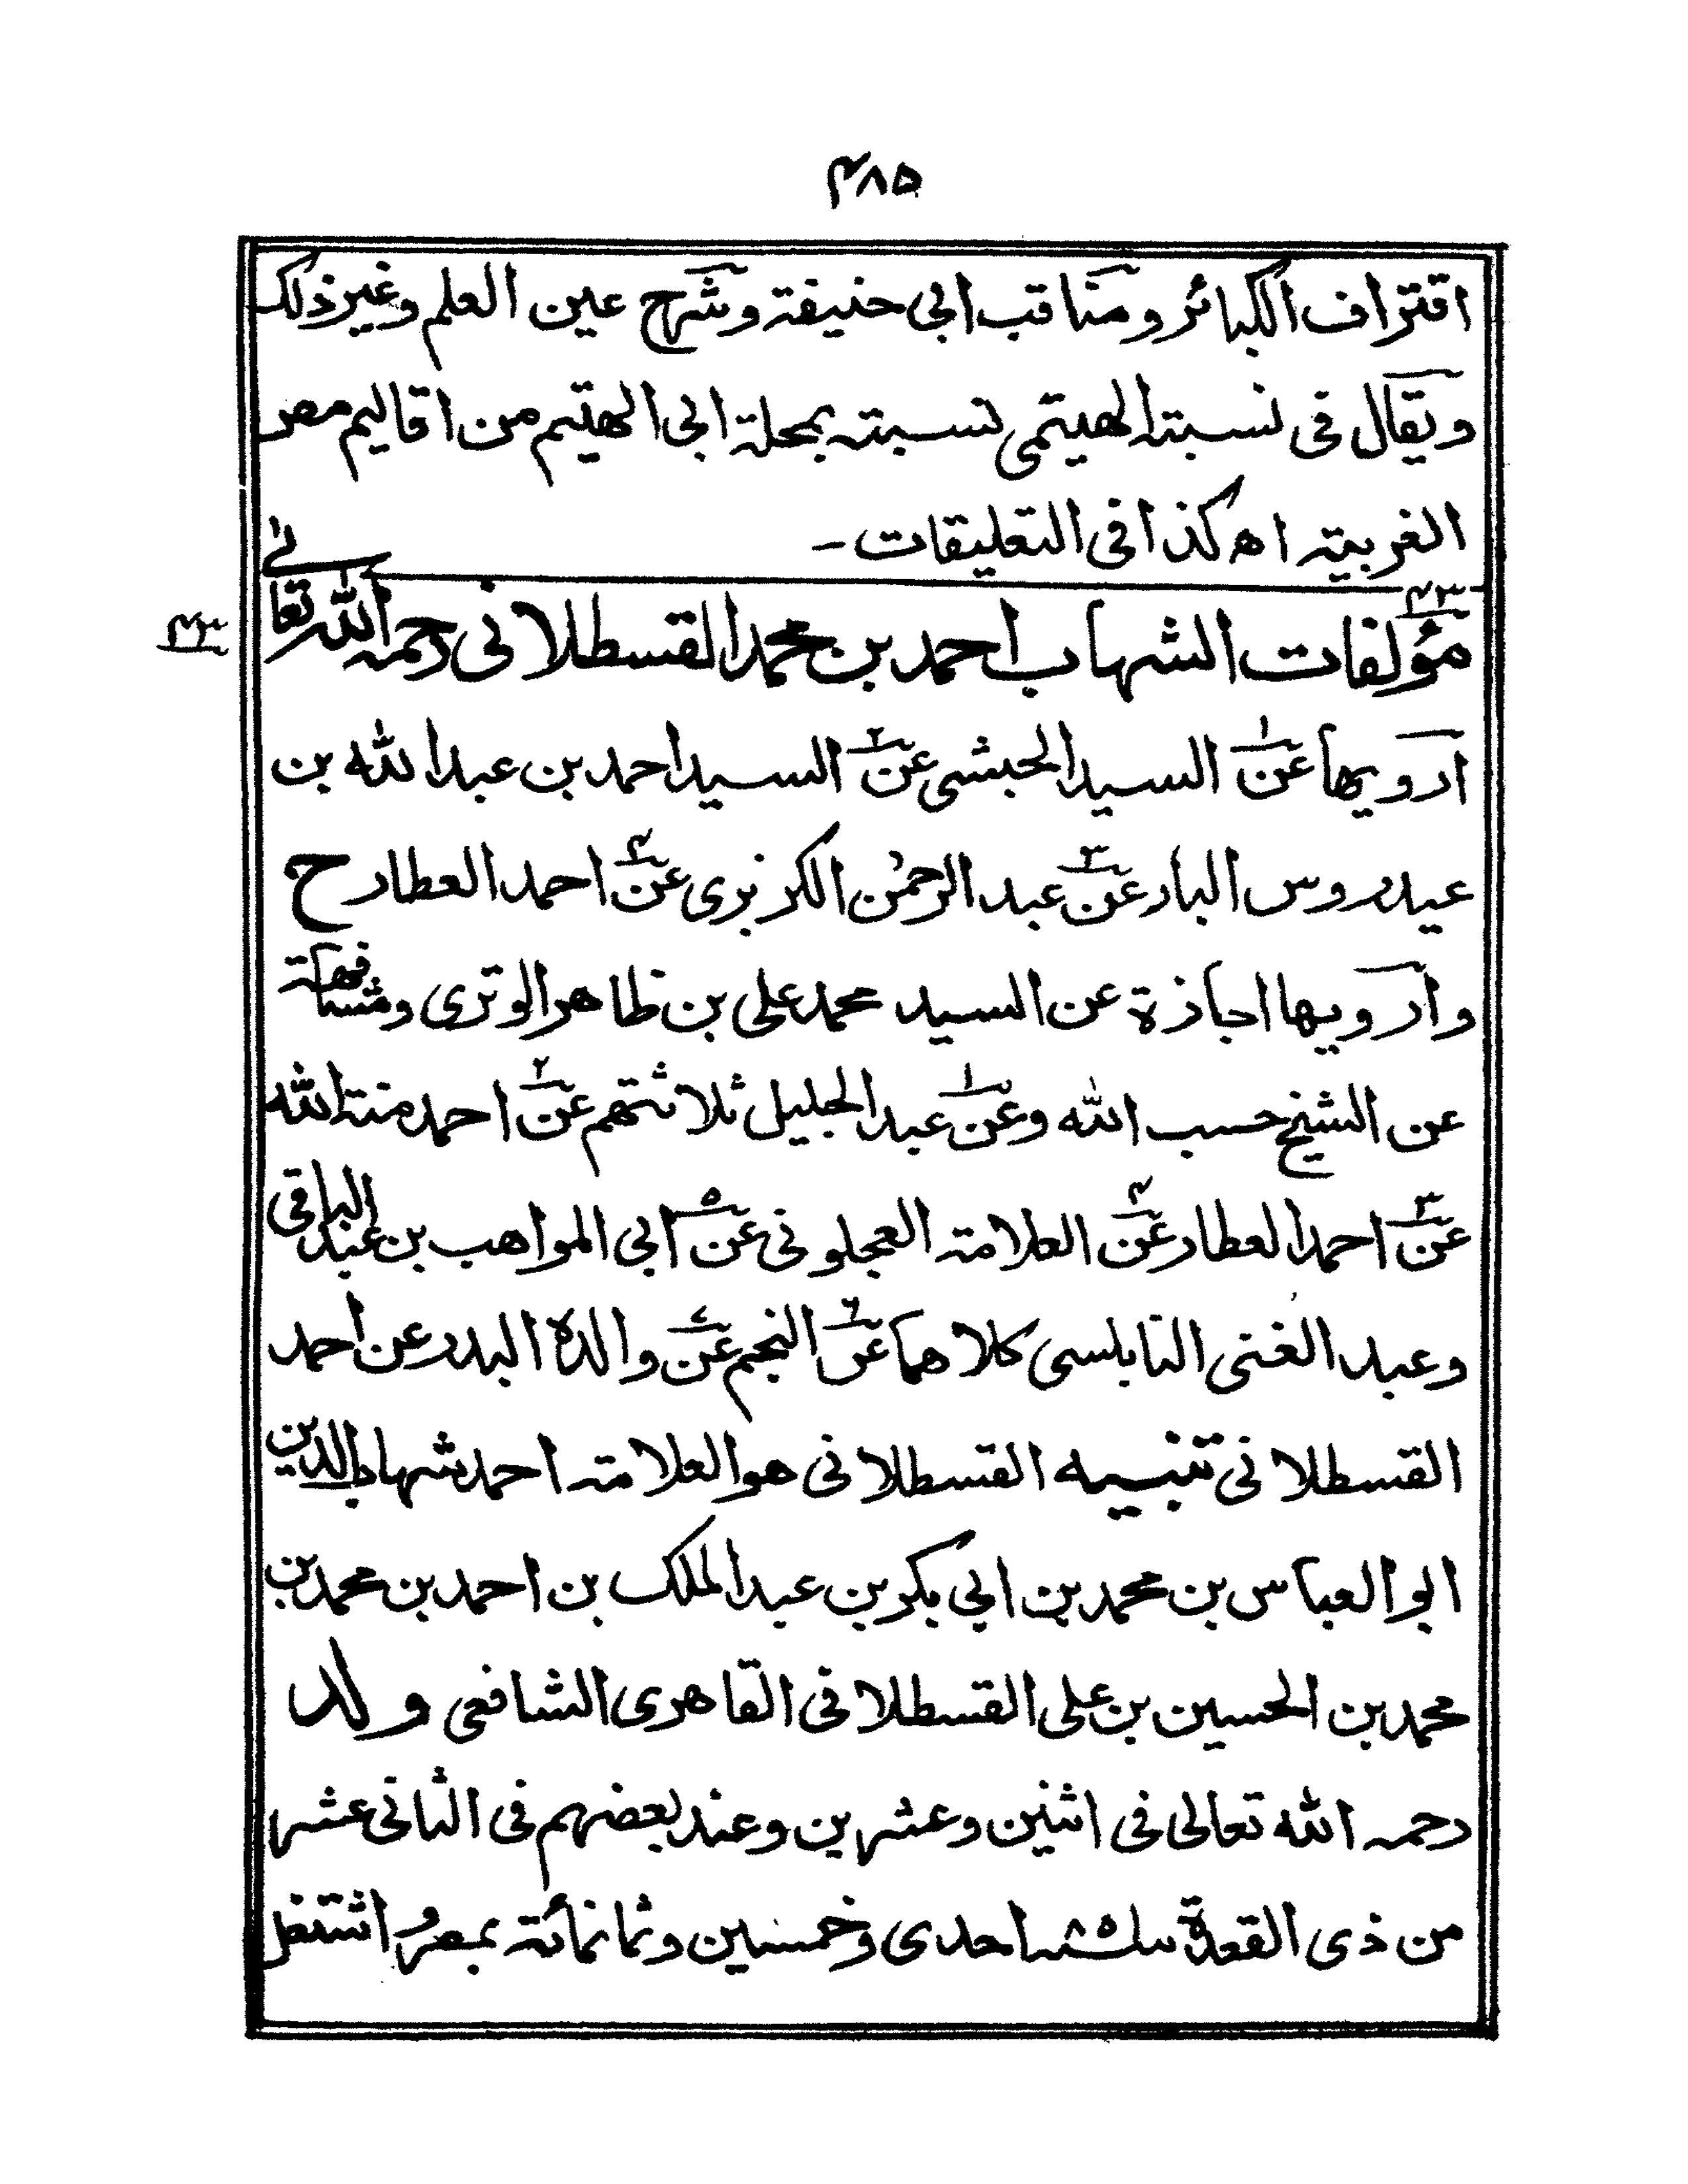 ۴۸۵
اقتراف الكبائر ومناقب ابي حنيفة وشرح عين العلم وغير ذلك
ويقال في نسبته الهيتمي نسبته بمحلة ابي الهيتم من اقاليم مصر
الغربية اه كذا في التعليقات -
۴۳ مؤلفات الشهاب احمد بن محمد القسطلاني رحمه الله تعالى ۴۳
ارويها عن۱ السيد الحبشي عن۲ السيد احمد بن عبد الله بن
عيدروس البار عن۳ عبد الرحمن الكزبري عن۴ احمد العطار ح
وارويها اجازة عن السيد محمد علي بن ظاهر الوتري ومشافهة
عن الشيخ حسب الله وعن۱ عبد الجليل ثلاثتهم عن۲ احمد منة الله
عن۳ احمد العطار عن۴ العلامة العجلوني عن۵ ابي المواهب بن عبد الباقي
وعبد الغني النابلسي كلاهما عن۶ النجم عن۷ والده البدر عن احمد
القسطلاني تنبيه القسطلاني هو العلامة احمد شهاب الدين
ابو العباس بن محمد بن ابي بكر بن عبد الملك بن احمد بن محمد بن
محمد بن الحسين بن علي القسطلاني القاهري الشافعي ولد
رحمه الله تعالى في اثنين وعشرين وعند بعضهم في الثاني عشر
من ذي القعدة احدى وخمسين وثمانمائة بمصر واشتغل